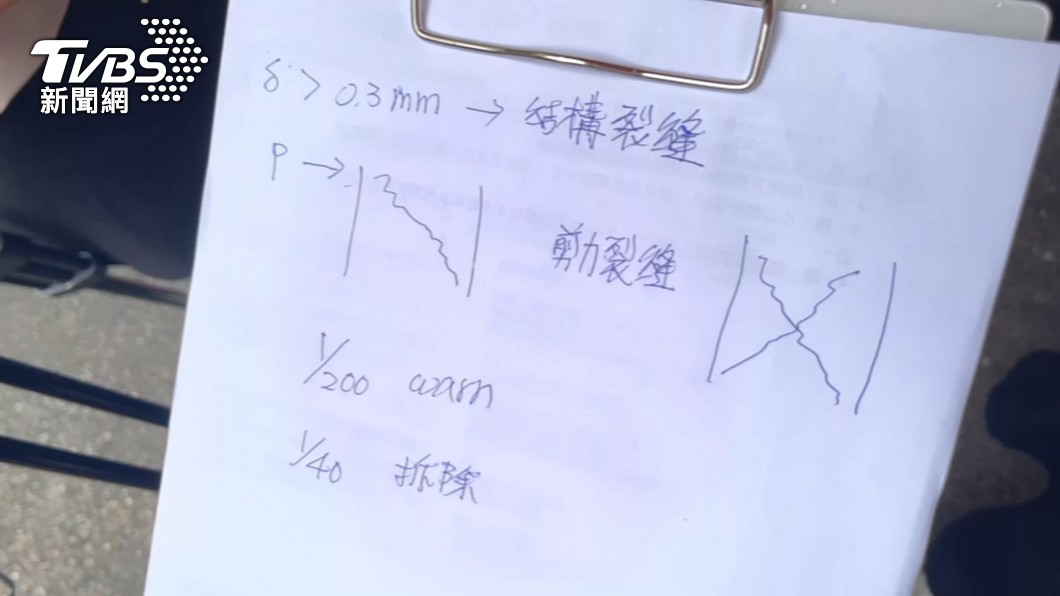 TVBS
新聞網
δ > 0.3mm → 結構裂縫
P →
剪力裂縫
1/200 warn
1/40 拆除